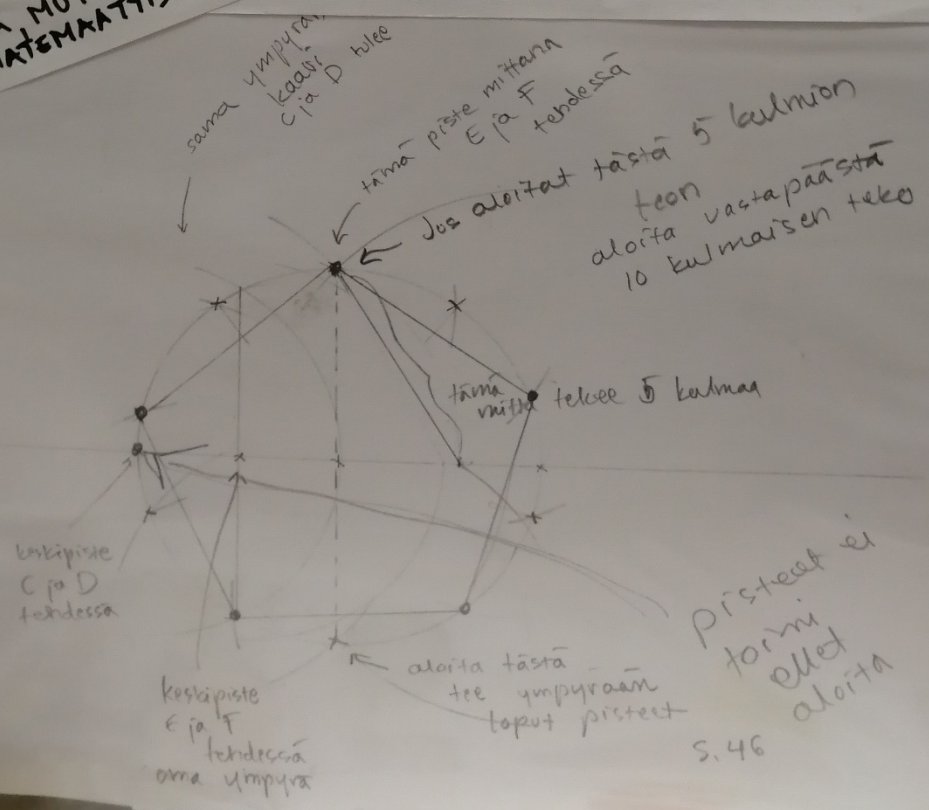 MATEMAATTIS
sama ympyrän
kaari
C ja D tulee
tämä piste mittana
E ja F
tehdessä
Jos aloitat tästä 5 kulmion
teon
aloita vastapäästä
10 kulmaisen teko
tämä
mitta tekee 5 kulmaa
keskipiste
C ja D
tehdessä
keskipiste
E ja F
tehdessä
oma ympyrä
aloita tästä
tee ympyrään
loput pisteet
pisteet ei
toimi
ellet
aloita
S. 46